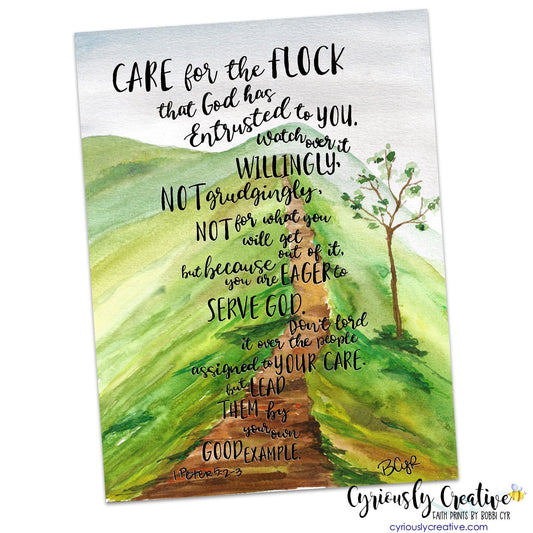 CARE for the FLOCK
that God has
Entrusted to YOU.
Watch over it
WILLINGLY,
NOT grudgingly,
NOT for what you
will get
out of it,
but because
you are EAGER to
SERVE GOD.
Don't lord
it over the people
assigned to YOUR CARE.
but LEAD
THEM by
your own
GOOD EXAMPLE.
1 PETER 5:2-3
BCyR
Cyriously Creative
FAITH PRINTS BY BOBBI CYR
cyriouslycreative.com